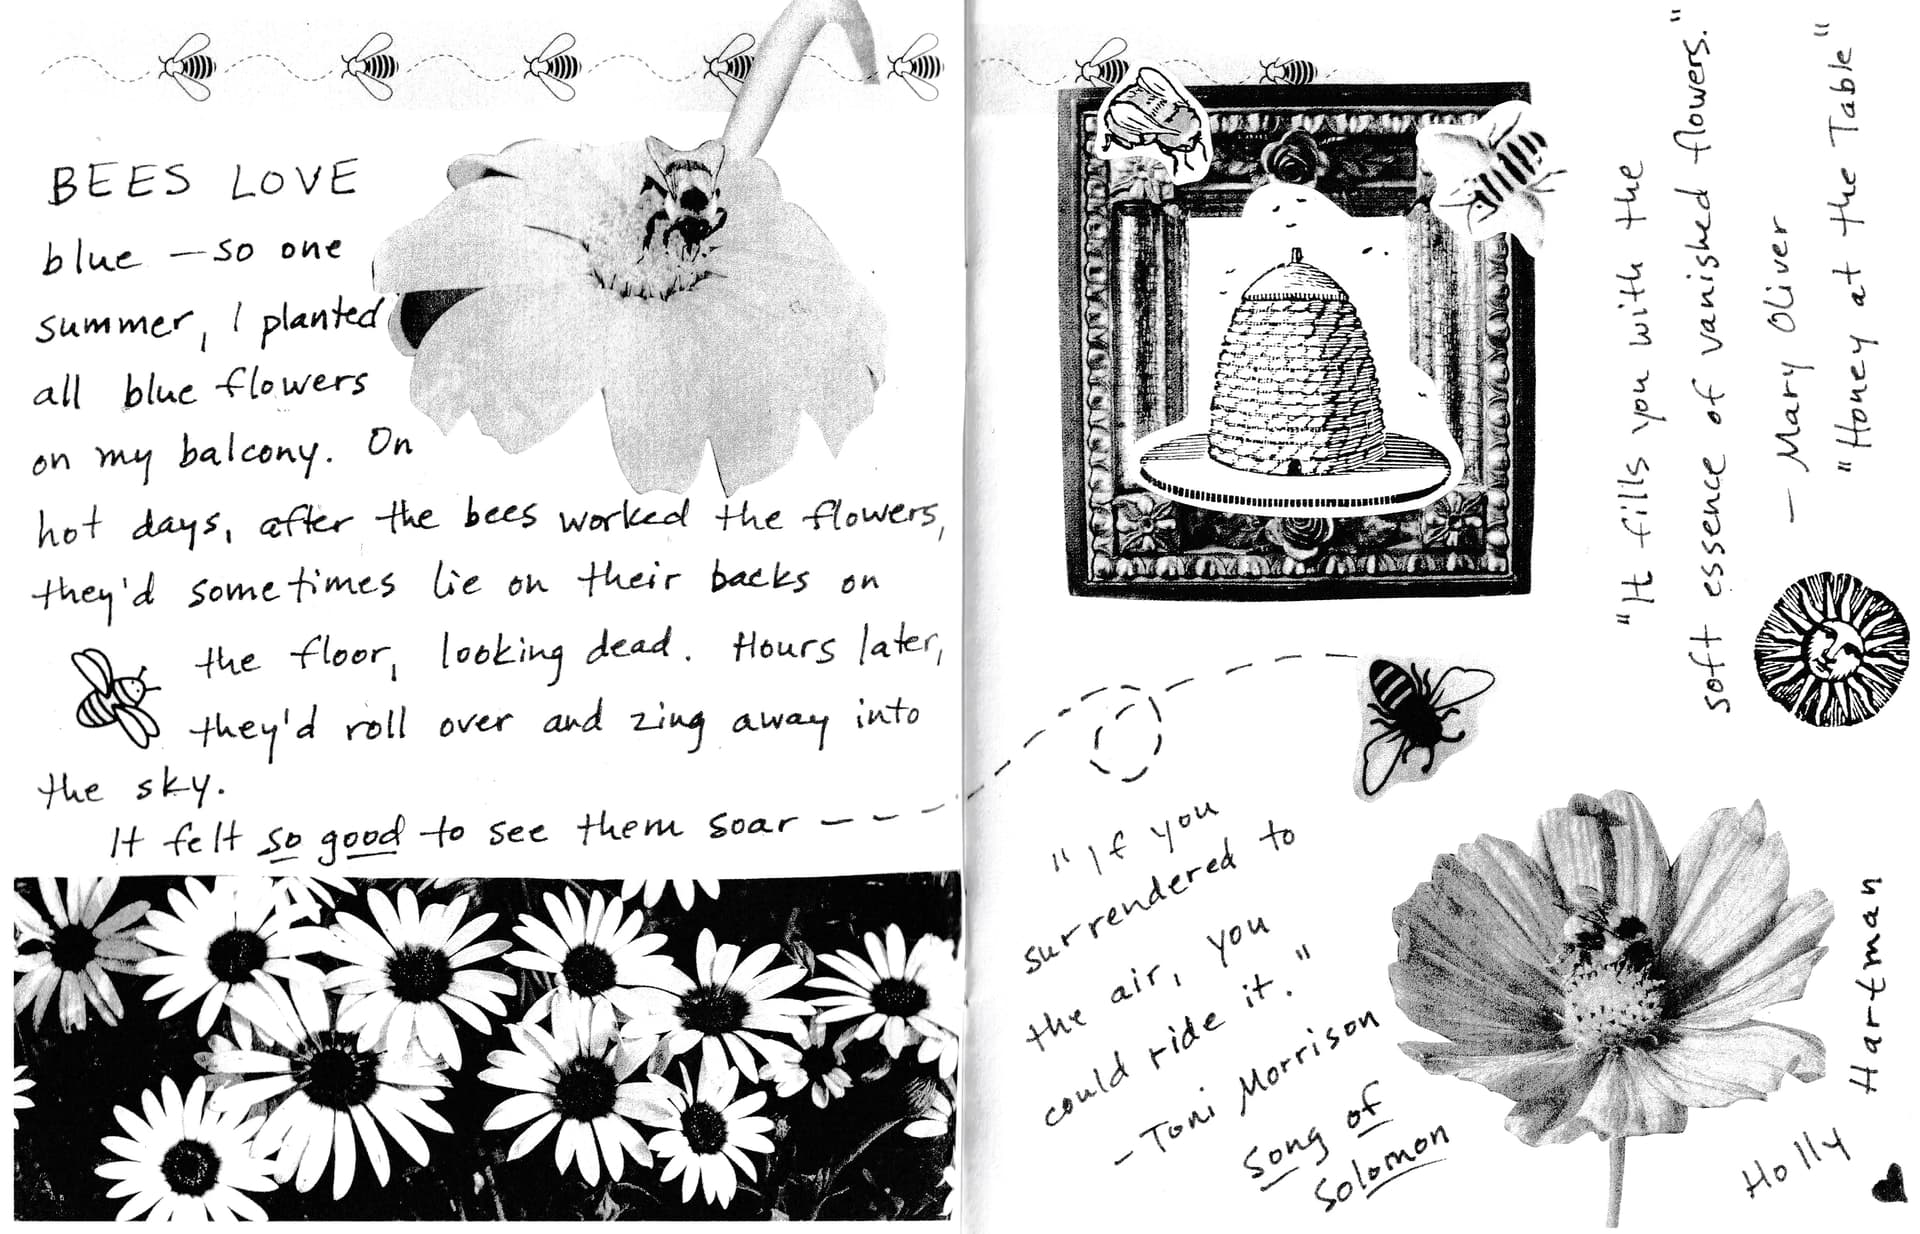 BEES LOVE
blue — so one
summer, I planted
all blue flowers
on my balcony. On
hot days, after the bees worked the flowers,
they'd sometimes lie on their backs on
the floor, looking dead. Hours later,
they'd roll over and zing away into
the sky.
It felt so good to see them soar - - -
"It fills you with the
soft essence of vanished flowers."
— Mary Oliver
"Honey at the Table"
"If you
surrendered to
the air, you
could ride it."
- Toni Morrison
Song of
Solomon
Holly
Hartman